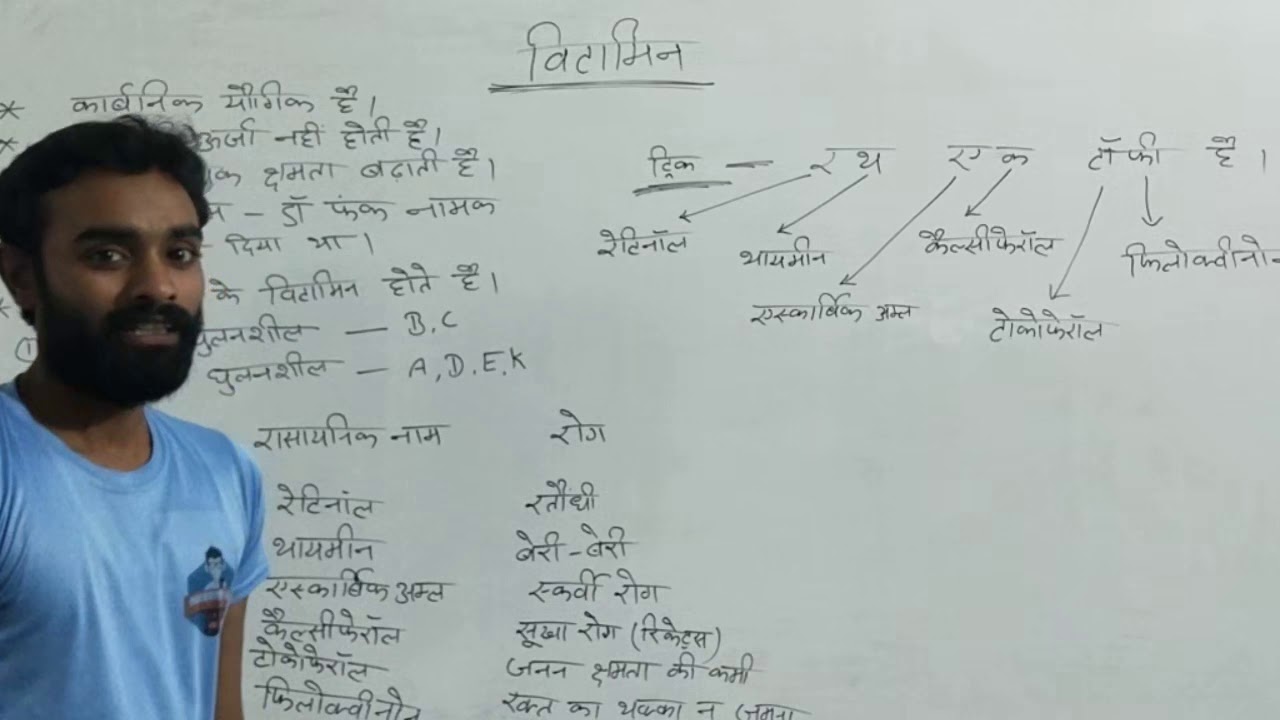 विटामिन
* कार्बनिक यौगिक है।
* ऊर्जा नहीं होती है।
क्षमता बढ़ाती है।
- डॉ फंक नामक
दिया था।
* के विटामिन होते है।
① घुलनशील — B, C
घुलनशील — A, D, E, K
ट्रिक — र थ ए क टॉ फी है।
रेटिनॉल थायमीन कैल्सीफेरॉल
एस्कार्बिक अम्ल टोकोफेरॉल
रासायनिक नाम रोग
रेटिनॉल रतौंधी
थायमीन बेरी-बेरी
एस्कार्बिक अम्ल स्कर्वी रोग
कैल्सीफेरॉल सूखा रोग (रिकेट्स)
टोकोफेरॉल जनन क्षमता की कमी
फिलोक्वीनोन रक्त का थक्का न जमना